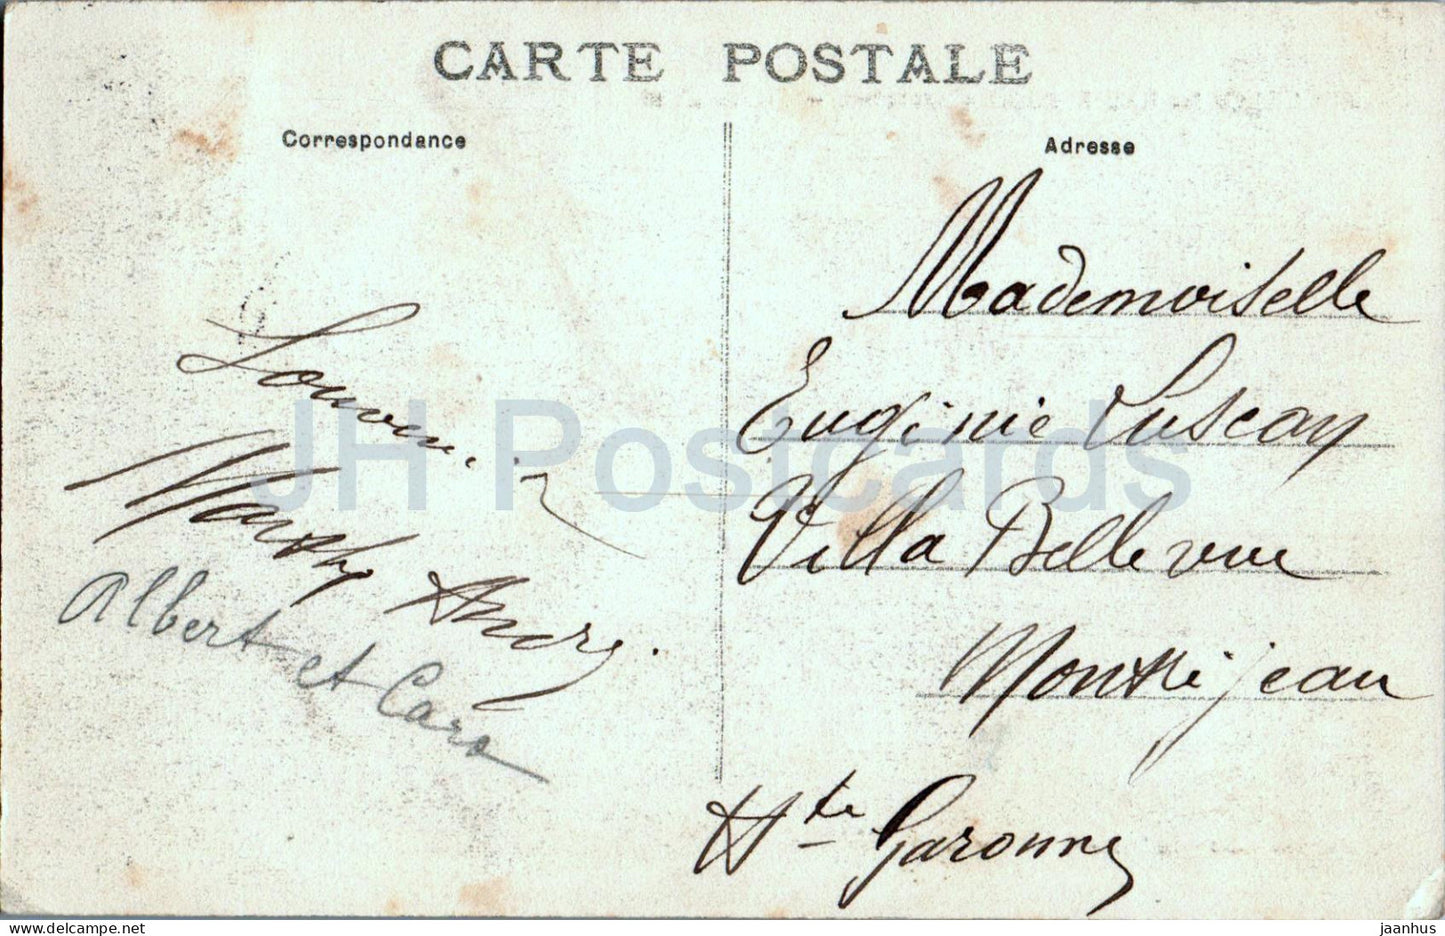 CARTE POSTALE
Correspondance
Adresse
Souvenir
Albert et Caro
Mademoiselle
Eugénie Luscan
Villa Bellevue
Montréjeau
Hte Garonne
JH Postcards
delcampe.net
jaanhus